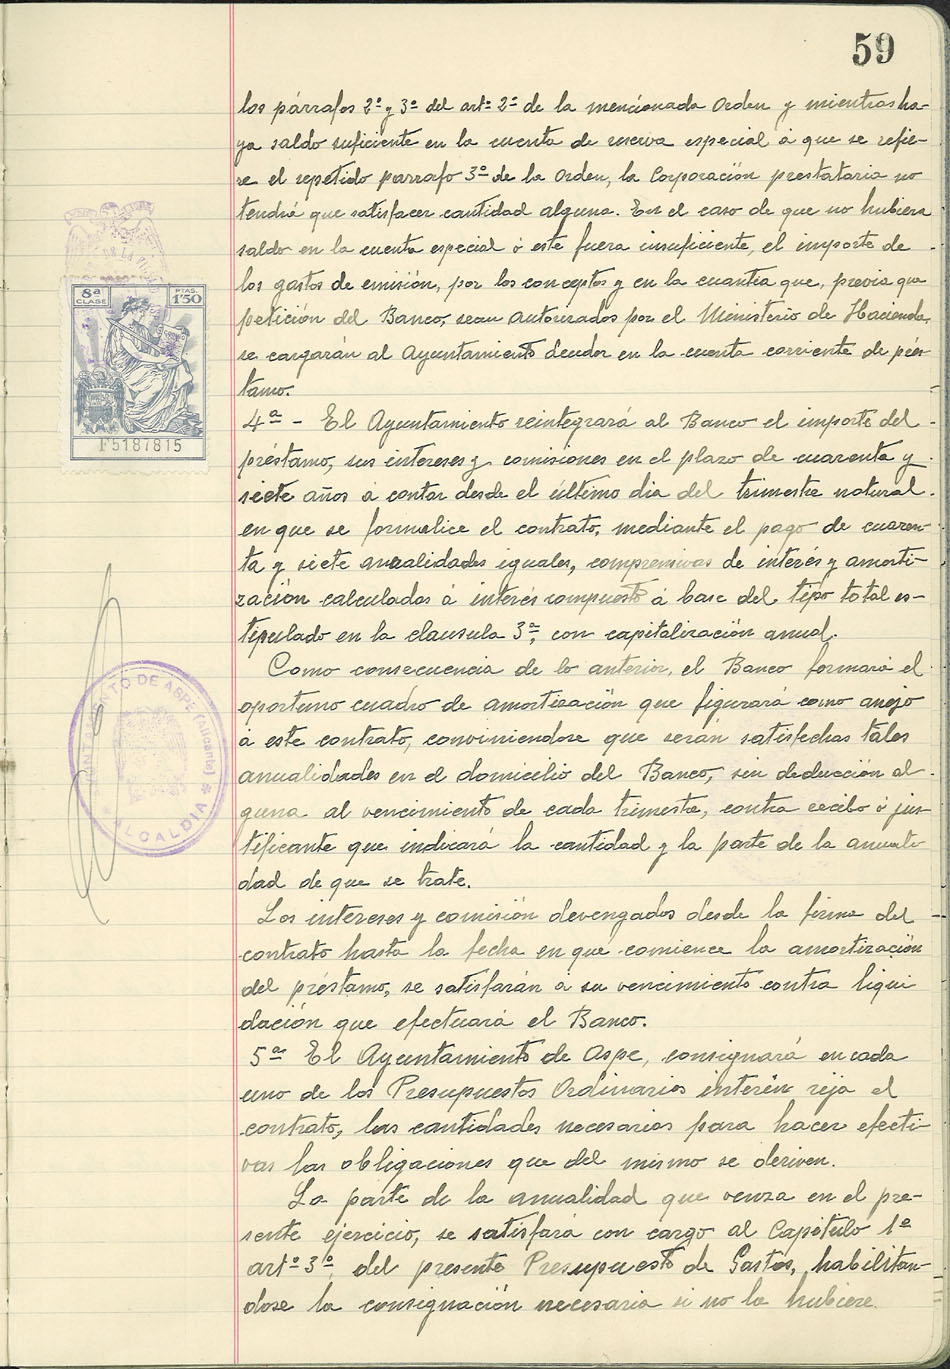 59
los párrafos 2º y 3º del artº 2º de la mencionada Orden y mientras ha-
ya saldo suficiente en la cuenta de reserva especial á que se refie-
re el repetido párrafo 3º de la Orden, la Corporación prestataria no
tendrá que satisfacer cantidad alguna. En el caso de que no hubiera
saldo en la cuenta especial ó este fuera insuficiente, el importe de
los gastos de emisión, por los conceptos y en la cuantía que, previa
petición del Banco, sean autorizados por el Ministerio de Hacienda,
se cargarán al Ayuntamiento deudor en la cuenta corriente de prés-
tamo.
4ª - El Ayuntamiento reintegrará al Banco el importe del
préstamo, sus intereses y comisiones en el plazo de cuarenta y
siete años á contar desde el último dia del trimestre natural
en que se formalice el contrato, mediante el pago de cuaren-
ta y siete anualidades iguales, comprensivas de interés y amorti-
zación calculadas á interés compuesto á base del tipo total es-
tipulado en la clausula 3ª, con capitalización anual.
Como consecuencia de lo anterior, el Banco formará el
oportuno cuadro de amortización que figurará como anejo
á este contrato, conviniendose que serán satisfechas tales
anualidades en el domicilio del Banco, sin deducción al
guna al vencimiento de cada trimestre, contra recibo ó jus
tificante que indicará la cantidad y la parte de la anuali-
dad de que se trate.
Los intereses y comisión devengados desde la firma del
contrato hasta la fecha en que comience la amortización
del préstamo, se satisfarán á su vencimiento contra liqui
dación que efectuará el Banco.
5ª El Ayuntamiento de Aspe, consignará en cada
uno de los Presupuestos Ordinarios interin rija el
contrato, las cantidades necesarias para hacer efecti-
vas las obligaciones que del mismo se deriven.
La parte de la anualidad que venza en el pre-
sente ejercicio, se satisfará con cargo al Capítulo 1º
artº 3º, del presente Presupuesto de Gastos, habilitan-
dose la consignación necesaria si no la hubiere.
8ª CLASE
PTAS. 1'50
F5187815
AYUNTAMIENTO DE ASPE (Alicante)
* ALCALDIA *